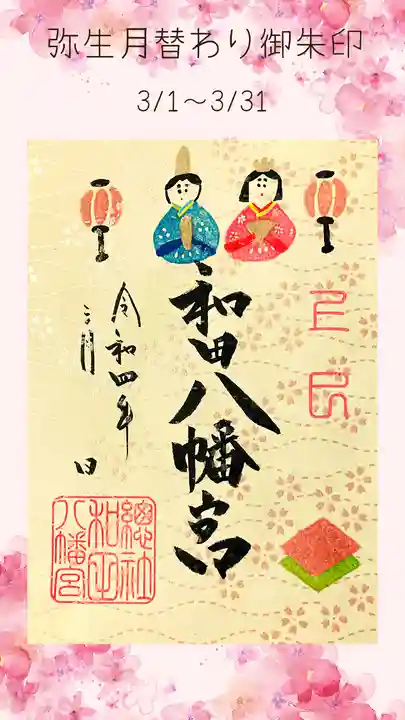 弥生月替わり御朱印
3/1〜3/31
上巳
總社和田八幡宮
令和四年
三月
日
總社
和田
八幡宮